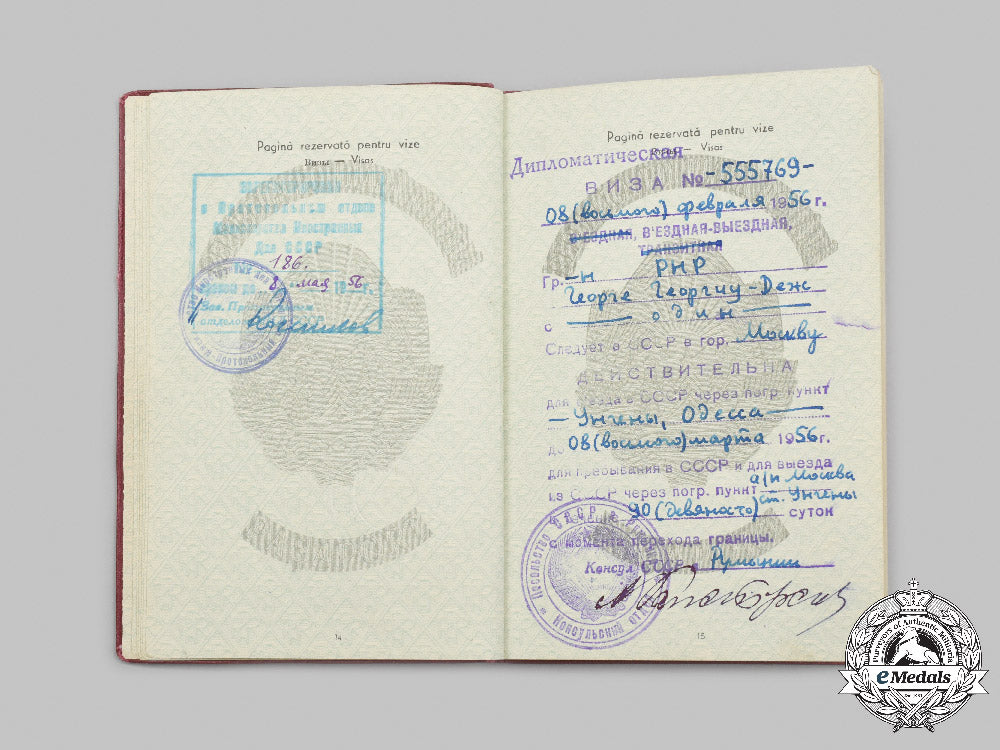 Pagină rezervată pentru vize
Визы — Visas
в отдел
Министерства Иностранных
Дел СССР
186.
8 мая 56
14
Pagină rezervată pentru vize
Визы — Visas
Дипломатическая
ВИЗА № -555769-
08 (восьмого) февраля 1956 г.
В'ЕЗДНАЯ, В'ЕЗДНАЯ-ВЫЕЗДНАЯ,
ТРАНЗИТНАЯ
Гр. -н РНР
Георге Георгиу-Деж
с — один —
Следует в СССР в гор. Москву
ДЕЙСТВИТЕЛЬНА
для в'езда в СССР через погр. пункт
— Унгены, Одесса —
до 08 (восьмого) марта 1956 г.
для пребывания в СССР и для выезда
из СССР через погр. пункт а/п Москва
ст. Унгены
90 (девяносто) суток
с момента перехода границы.
Консул СССР в Румынии
Посольство СССР в
Консульский
15
Purveyors of Authentic Militaria
eMedals